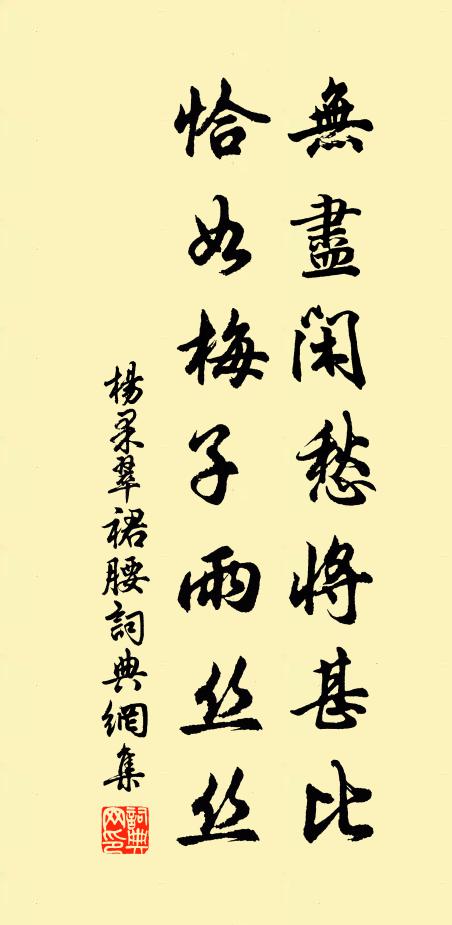 無盡闲愁將甚比
恰如梅子雨丝丝
楊果翠裙腰詞典網集
詞典网印